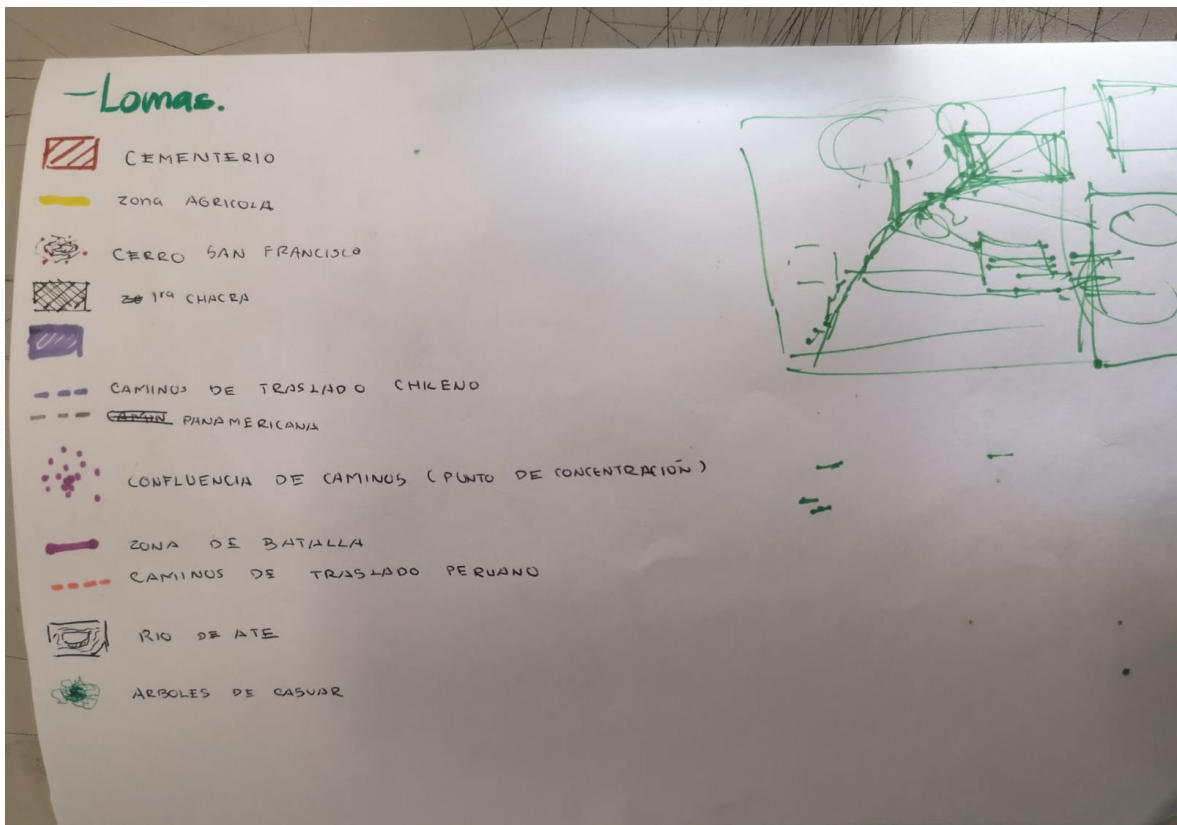 -Lomas.
CEMENTERIO
ZONA AGRICOLA
CERRO SAN FRANCISCO
1ra CHACRA
CAMINOS DE TRASLADO CHILENO
PANAMERICANA
CONFLUENCIA DE CAMINOS (PUNTO DE CONCENTRACIÓN)
ZONA DE BATALLA
CAMINOS DE TRASLADO PERUANO
RIO DE ATE
ARBOLES DE CASUAR